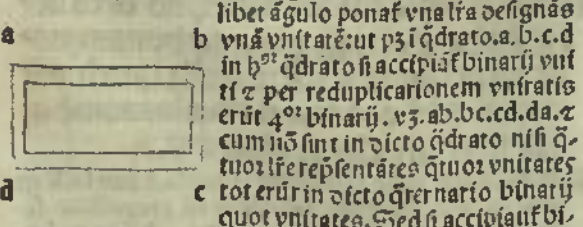 libet āgulo ponat᷑ vna lr̄a deſignās
a b vnā vnitatē:ut pꝫ ī q̄drato.a.b.c.d
in h⁹ꝛ q̄drato ſi accipiāt᷑ binarij vni
ti ⁊ per reduplicationem vnitatis
erūt 4ᵒꝛ binarij. vꝫ.ab.bc.cd.da.⁊
cum nō ſint in dicto q̄drato niſi q̄-
tuoꝛ lr̄e repſentātes q̄tuoꝛ vnitates
d c tot erūt in dicto q̄ternario binarij
quot vnitates. Sed ſi accipiant᷑ bi-